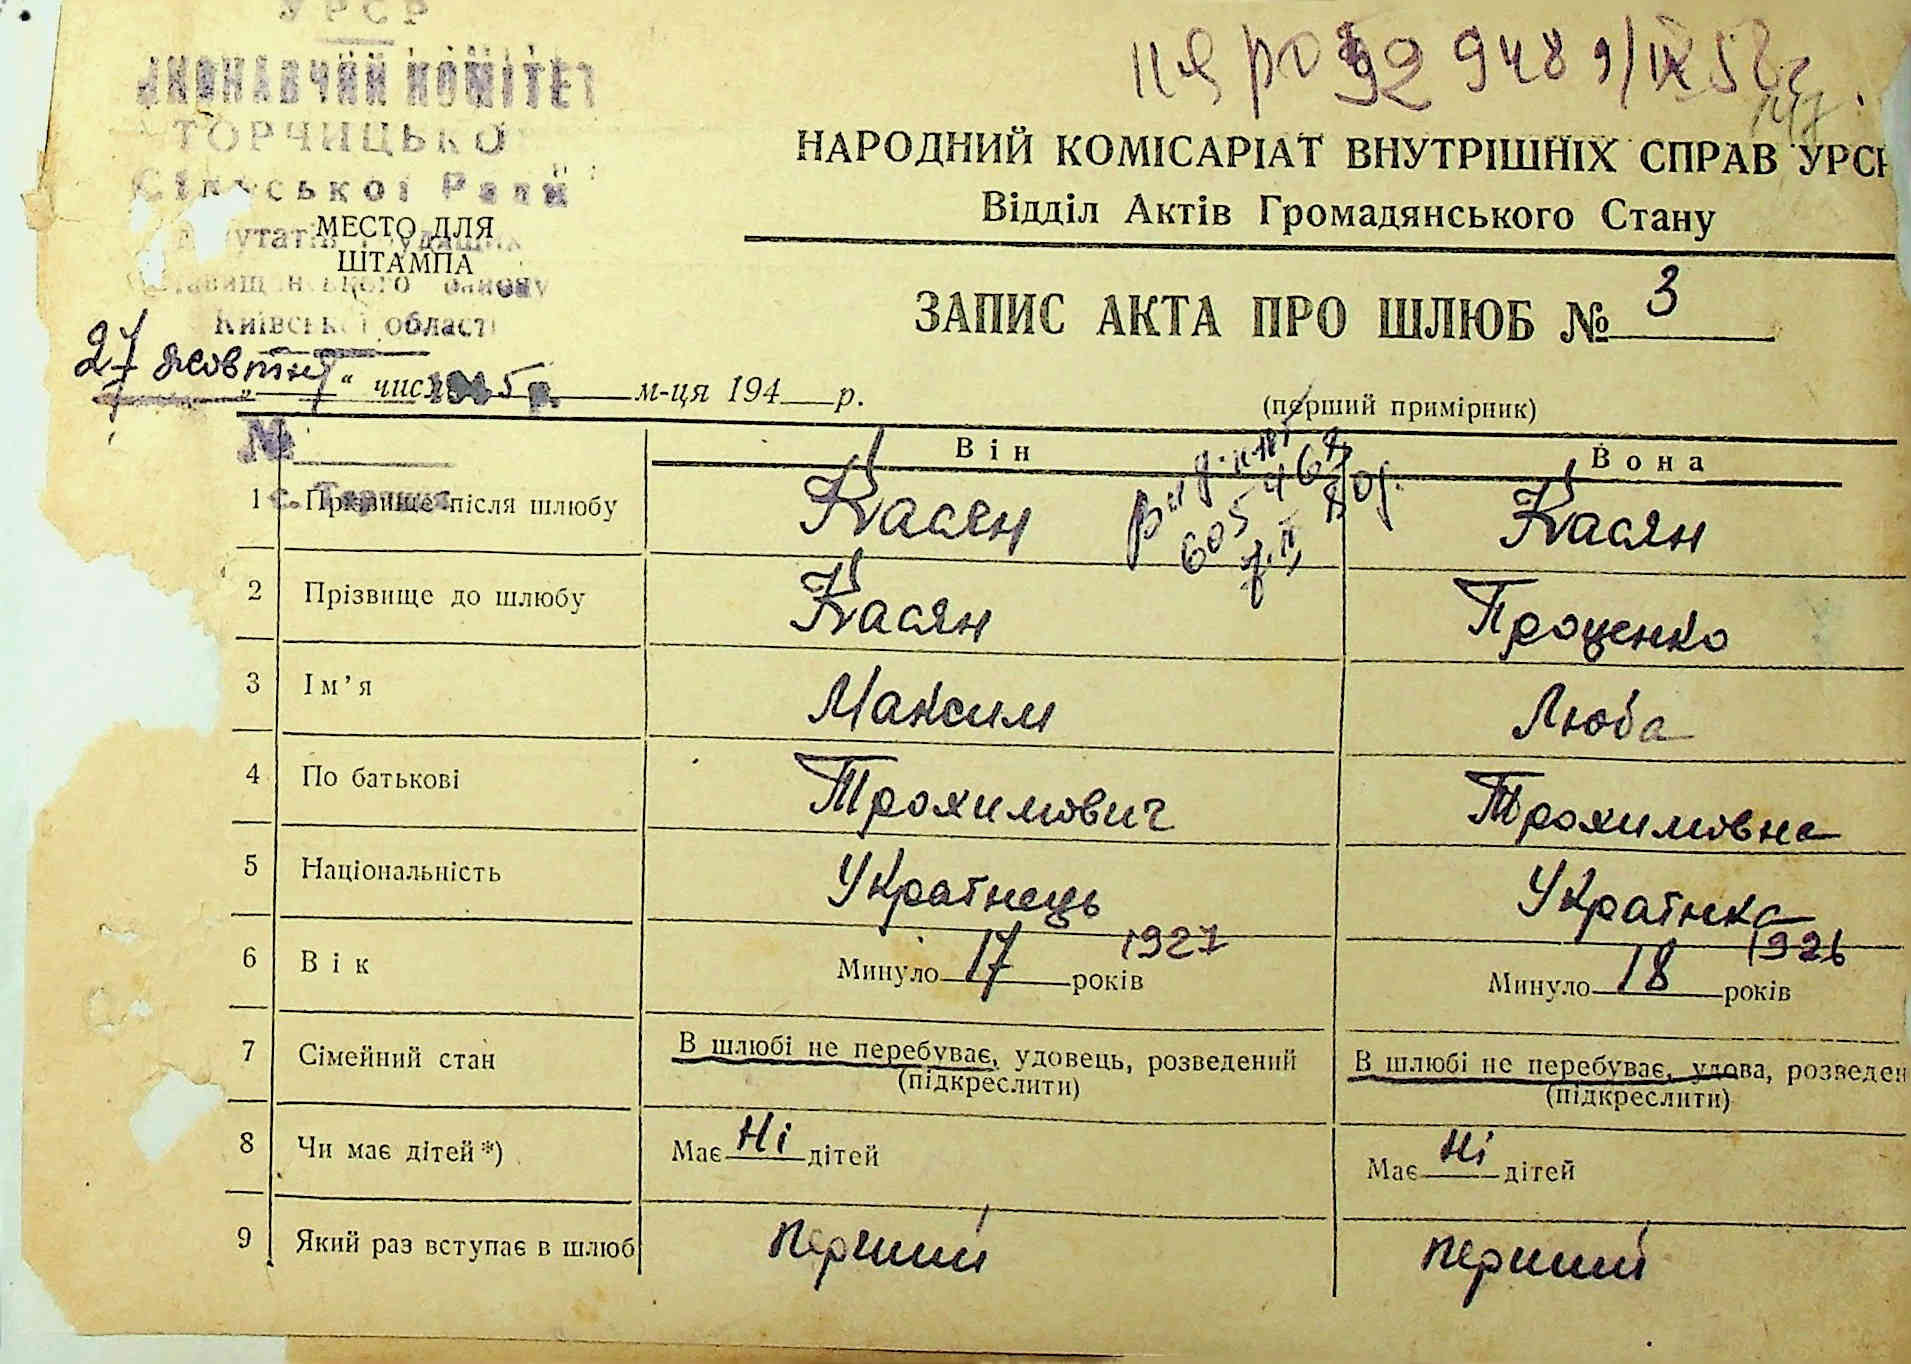 УРСР
ВИКОНАВЧИЙ КОМІТЕТ
ТОРЧИЦЬКО
Сільської Ради
МЕСТО ДЛЯ
ШТАМПА
Київської області
27 жовтня
„ “ числа 1945 р. м-ця 194 р.
№
9/IX 58 г.
147
НАРОДНИЙ КОМІСАРІАТ ВНУТРІШНІХ СПРАВ УРСР
Відділ Актів Громадянського Стану
ЗАПИС АКТА ПРО ШЛЮБ № 3
(перший примірник)
Він Вона
1 Прізвище після шлюбу Касян Касян
2 Прізвище до шлюбу Касян Проценко
3 Ім’я Максим Люба
4 По батькові Трохимович Трохимовна
5 Національність Українець Українка
6 Вік Минуло 17 років 1927 Минуло 18 років 1926
7 Сімейний стан В шлюбі не перебуває, удовець, розведений В шлюбі не перебуває, удова, розведен
(підкреслити) (підкреслити)
8 Чи має дітей*) Має Ні дітей Має Ні дітей
9 Який раз вступає в шлюб перший перший